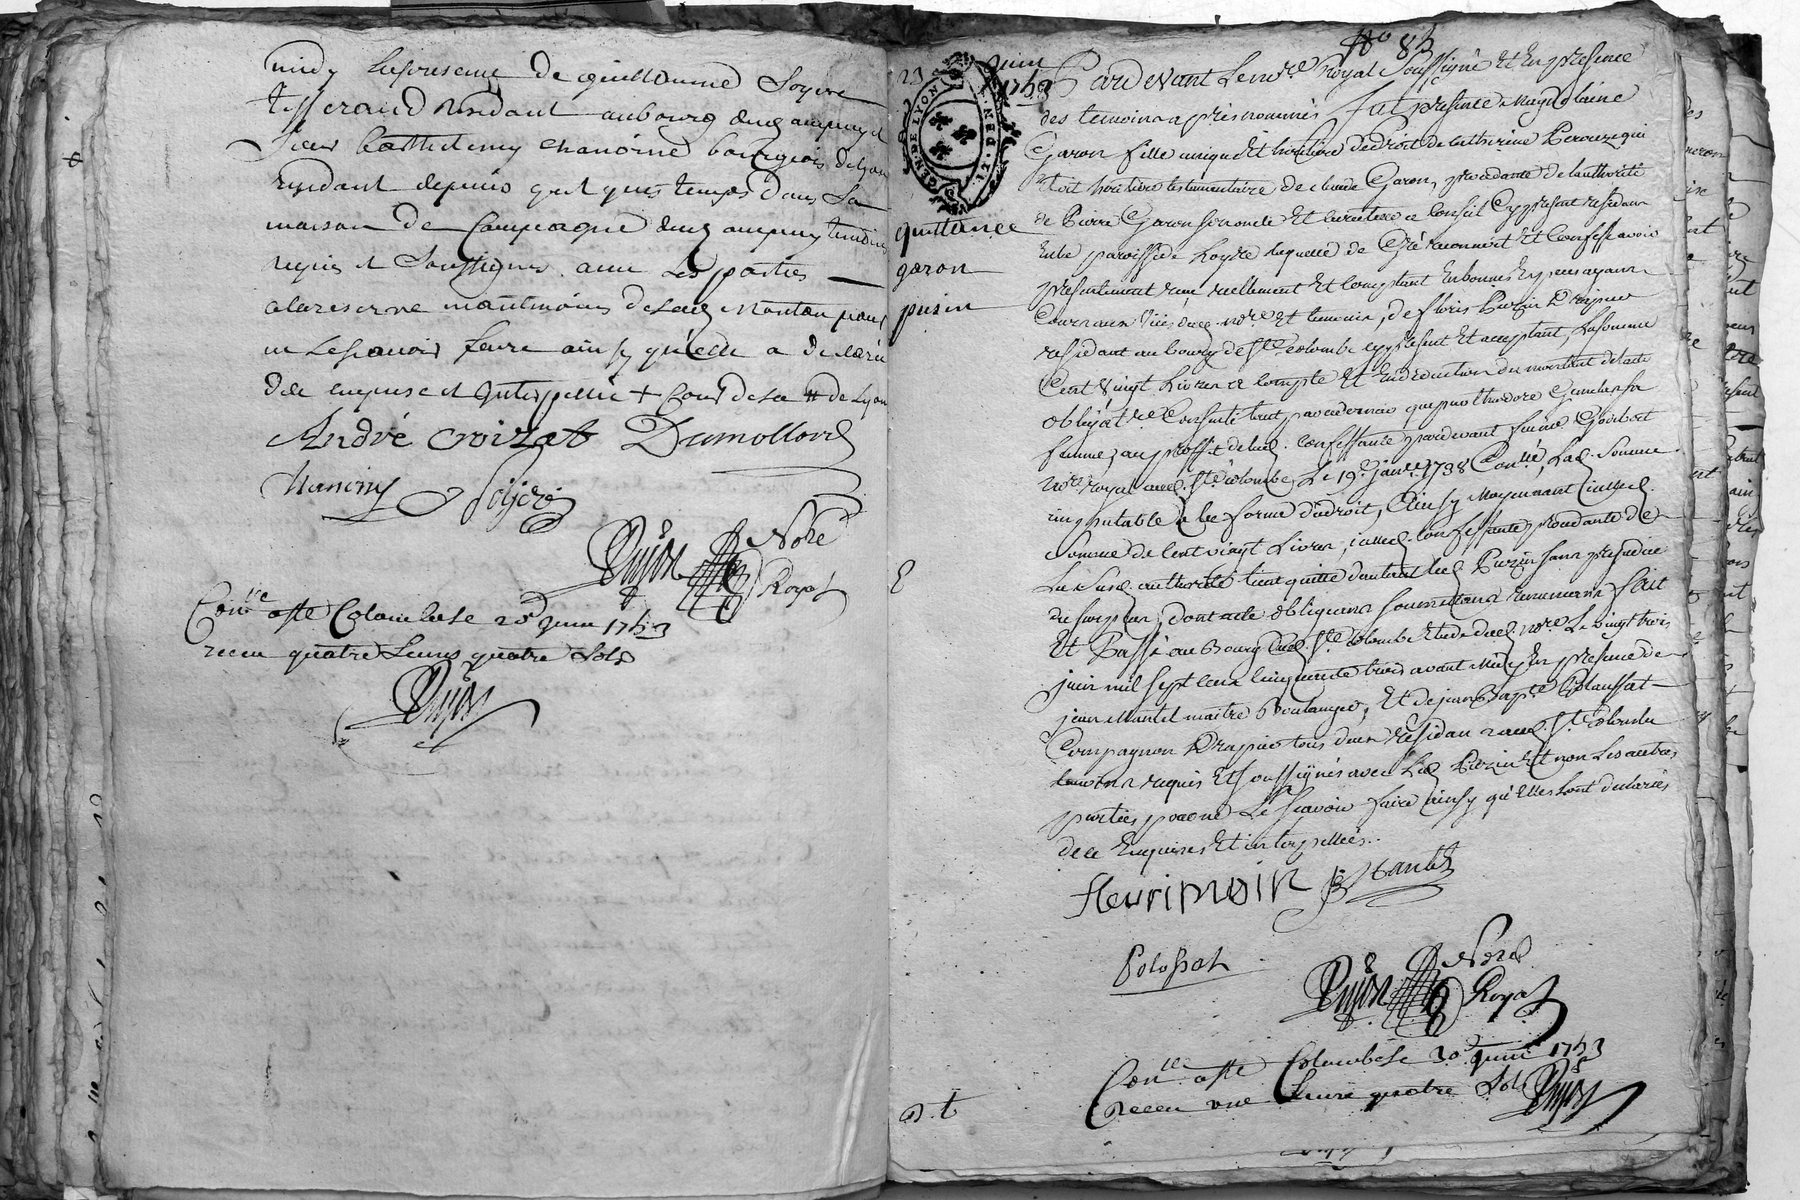 midy en presence de guillaume Soyere
tisserand residant au bourg dud ampuy et
Sieur Barthelemy chanoine bourgeois de lyon
residant depuis quelques temps dans Sa
maison de Campagne dud ampuy temoins
requis et Soussignes avec les parties
a la reserve neantmoins de lad pour
ne le scavoir faire ainsy qu'elle a declaré
de ce enquise et interpellée + Cour de Lyon
André croizat Dumollard
Soyere
Dujon Nore
Royal
Con.lle aste Colombe le 20 juin 1753
receu quatre Livres quatre Sols
Dujon
No 83
23 juin 1753
GEN. DE LYON
quittance
garon
pusin
Pardevant Le no.re Royal Soussigné Et En presence
des temoins apres nommés fut presente Magdelaine
Garon fille unique Et heritiere de droit de Catherine Perouze qui
Etoit heritiere testamentaire de claude Garon, procedante de l'authorité
de Pierre Garon son oncle Et curateur a conseil Cy present residant
En la paroisse de Loyre laquelle de Gré reconnoit Et confesse avoir
presentement receu reellement Et Comptant En bonnes Especes ayant
Cours aux vües dud. no.re Et temoins, de floris Puzin Drapier
residant au bourg de S.te colombe cy present Et acceptant, La somme
Cent Vingt Livres a compte Et En deduction du montant de l'acte
obligat.re Consenti tant par led Puzin que par theodore
femme, au proffit de lad. confessante pardevant feu me Gourbat
no.re royal aud. S.te colombe, Le 19.e janv.r 1738 Con.llé, Lad. Somme
imputable a la forme du droit, Ainsy Moyennant ladte
Somme de Cent vingt Livres, lad. confessante procedante de
La Susd. authorité tient quitte d'autant led Puzin sans prejudice
du surplus, dont acte obligeans soumettans renoncans fait
Et Passé au Bourg dud. S.te colombe Etude dud. no.re Le vingt trois
juin mil sept cens cinquante trois avant Midy En presence de
jean Mantel maitre Boulanger, Et de jean Bapt.te Polaussat
Compagnon Drapier tous deux residans aud. S.te colombe
temoins requis Et soussignés avec Led Puzin Et non Les autres
parties pour ne Le scavoir faire ainsy qu'Elles l'ont declaré
de ce Enquises Et interpellées.
fleuri Mantel
Polossat
Dujon Nore
Royal
Con.lle aste Colombe le 30 juin 1753
Receu une Livre quatre Sols Dujon